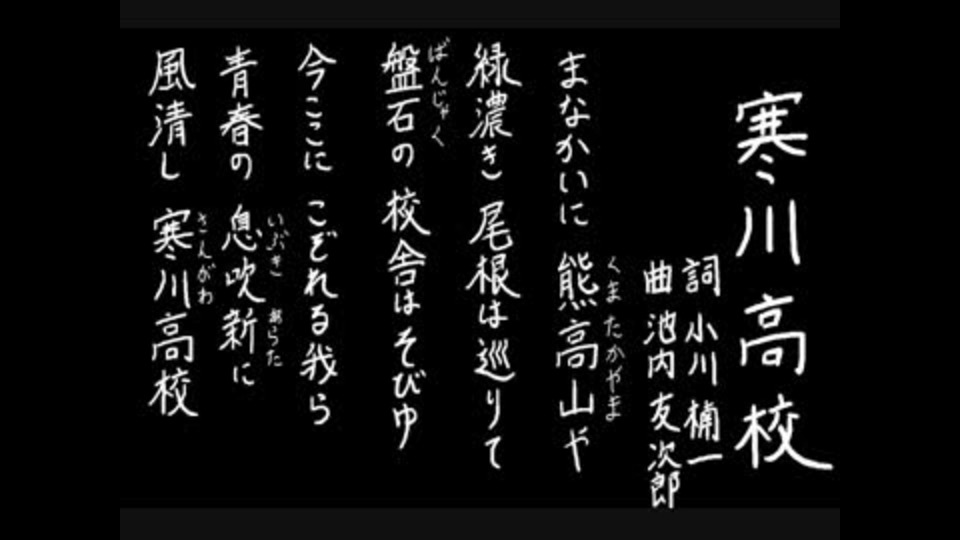 寒川高校
詞 小川楠一
曲 池内友次郎
まなかいに 熊高山や
くまたかやま
緑濃き 尾根は巡りて
盤石の 校舎はそびゆ
ばんじゃく
今ここに こぞれる我ら
青春の 息吹新に
いぶき あらた
風清し 寒川高校
さんがわ